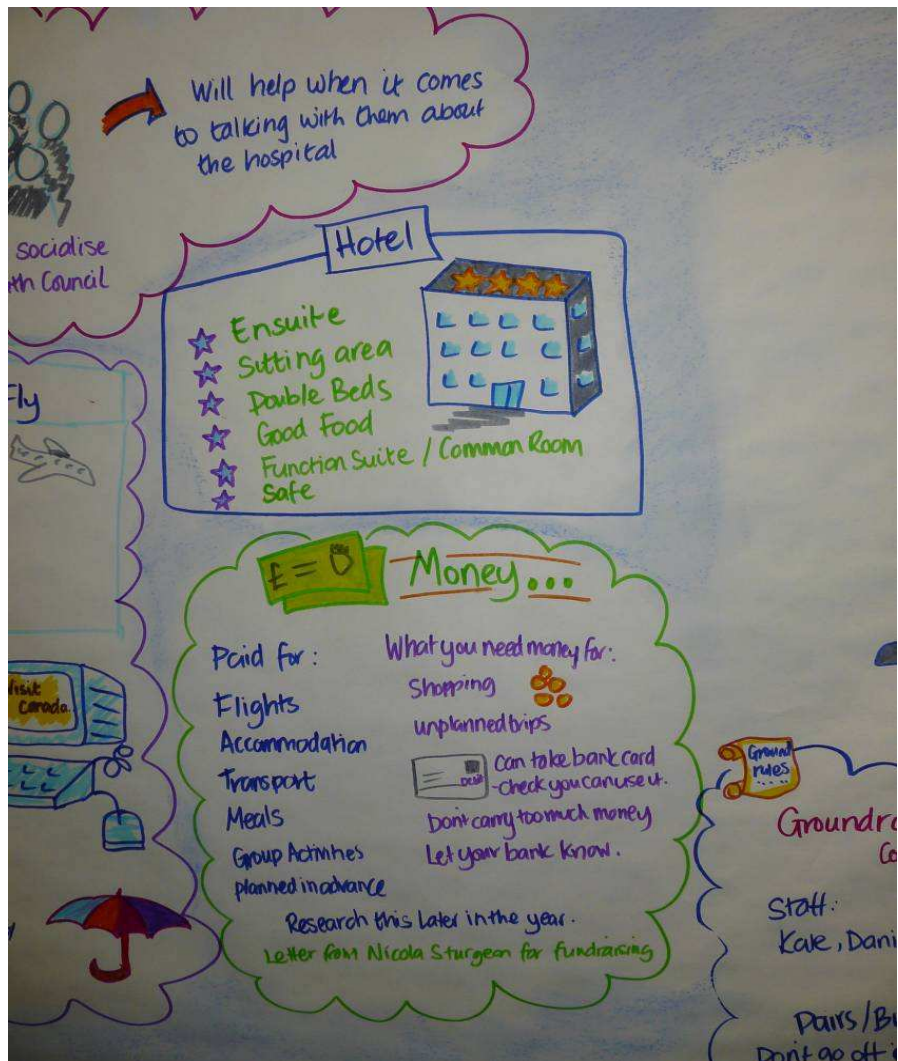 Will help when it comes
to talking with them about
the hospital
socialise
Council
Hotel
Ensuite
Sitting area
Double Beds
Good Food
Function Suite / Common Room
Safe
Fly
£ =
Money...
Paid for:
Flights
Accommodation
Transport
Meals
Group Activities
planned in advance
What you need money for:
Shopping
unplanned trips
DEBIT
Can take bank card
-check you can use it.
Dont carry too much money
Let your bank know.
Research this Later in the year.
Letter from Nicola Sturgeon for fundraising
Visit
Canada
Ground
rules
....
Groundr
Co
Staff:
Dani
Pairs/Bu
Don't go off